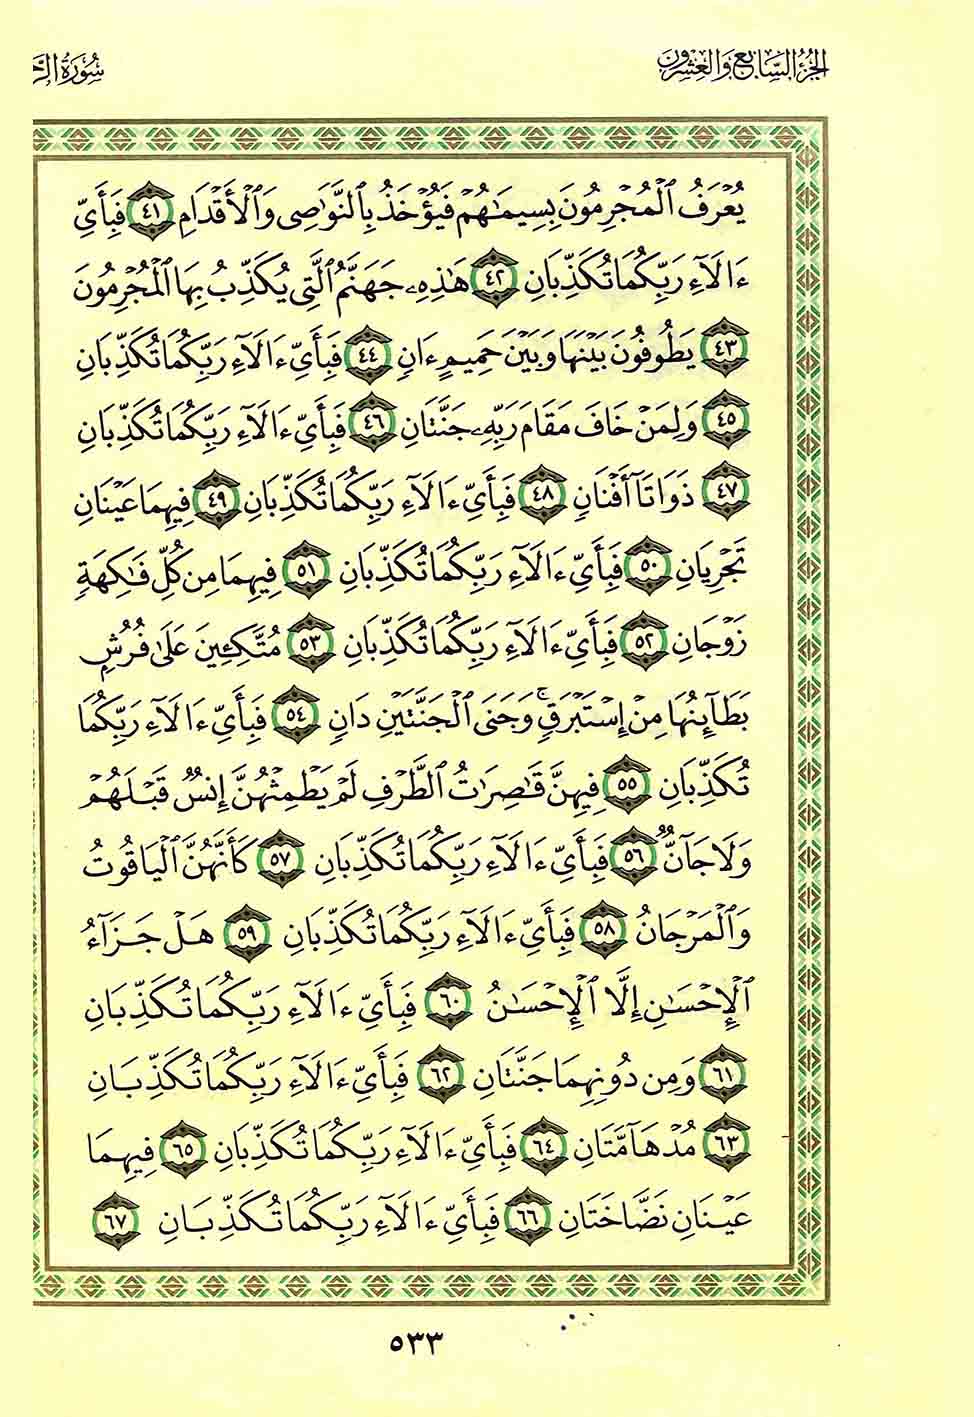 الجُزءُ السَّابِعُ وَالعِشْرُونَ
سُورَةُ الرَّ
يُعۡرَفُ ٱلۡمُجۡرِمُونَ بِسِيمَٰهُمۡ فَيُؤۡخَذُ بِٱلنَّوَٰصِى وَٱلۡأَقۡدَامِ ٤١ فَبِأَيِّ
ءَالَآءِ رَبِّكُمَا تُكَذِّبَانِ ٤٢ هَٰذِهِۦ جَهَنَّمُ ٱلَّتِى يُكَذِّبُ بِهَا ٱلۡمُجۡرِمُونَ
٤٣ يَطُوفُونَ بَيۡنَهَا وَبَيۡنَ حَمِيمٍ ءَانٍ ٤٤ فَبِأَيِّ ءَالَآءِ رَبِّكُمَا تُكَذِّبَانِ
٤٥ وَلِمَنۡ خَافَ مَقَامَ رَبِّهِۦ جَنَّتَانِ ٤٦ فَبِأَيِّ ءَالَآءِ رَبِّكُمَا تُكَذِّبَانِ
٤٧ ذَوَاتَآ أَفۡنَانٍ ٤٨ فَبِأَيِّ ءَالَآءِ رَبِّكُمَا تُكَذِّبَانِ ٤٩ فِيهِمَا عَيۡنَانِ
تَجۡرِيَانِ ٥٠ فَبِأَيِّ ءَالَآءِ رَبِّكُمَا تُكَذِّبَانِ ٥١ فِيهِمَا مِن كُلِّ فَٰكِهَةٍ
زَوۡجَانِ ٥٢ فَبِأَيِّ ءَالَآءِ رَبِّكُمَا تُكَذِّبَانِ ٥٣ مُتَّكِـِٔينَ عَلَىٰ فُرُشٍ
بَطَآئِنُهَا مِنۡ إِسۡتَبۡرَقٍۚ وَجَنَى ٱلۡجَنَّتَيۡنِ دَانٍ ٥٤ فَبِأَيِّ ءَالَآءِ رَبِّكُمَا
تُكَذِّبَانِ ٥٥ فِيهِنَّ قَٰصِرَٰتُ ٱلطَّرۡفِ لَمۡ يَطۡمِثۡهُنَّ إِنسٌ قَبۡلَهُمۡ
وَلَا جَآنٌّ ٥٦ فَبِأَيِّ ءَالَآءِ رَبِّكُمَا تُكَذِّبَانِ ٥٧ كَأَنَّهُنَّ ٱلۡيَاقُوتُ
وَٱلۡمَرۡجَانُ ٥٨ فَبِأَيِّ ءَالَآءِ رَبِّكُمَا تُكَذِّبَانِ ٥٩ هَلۡ جَزَآءُ
ٱلۡإِحۡسَٰنِ إِلَّا ٱلۡإِحۡسَٰنُ ٦٠ فَبِأَيِّ ءَالَآءِ رَبِّكُمَا تُكَذِّبَانِ
٦١ وَمِن دُونِهِمَا جَنَّتَانِ ٦٢ فَبِأَيِّ ءَالَآءِ رَبِّكُمَا تُكَذِّبَانِ
٦٣ مُدۡهَآمَّتَانِ ٦٤ فَبِأَيِّ ءَالَآءِ رَبِّكُمَا تُكَذِّبَانِ ٦٥ فِيهِمَا
عَيۡنَانِ نَضَّاخَتَانِ ٦٦ فَبِأَيِّ ءَالَآءِ رَبِّكُمَا تُكَذِّبَانِ ٦٧
٥٣٣